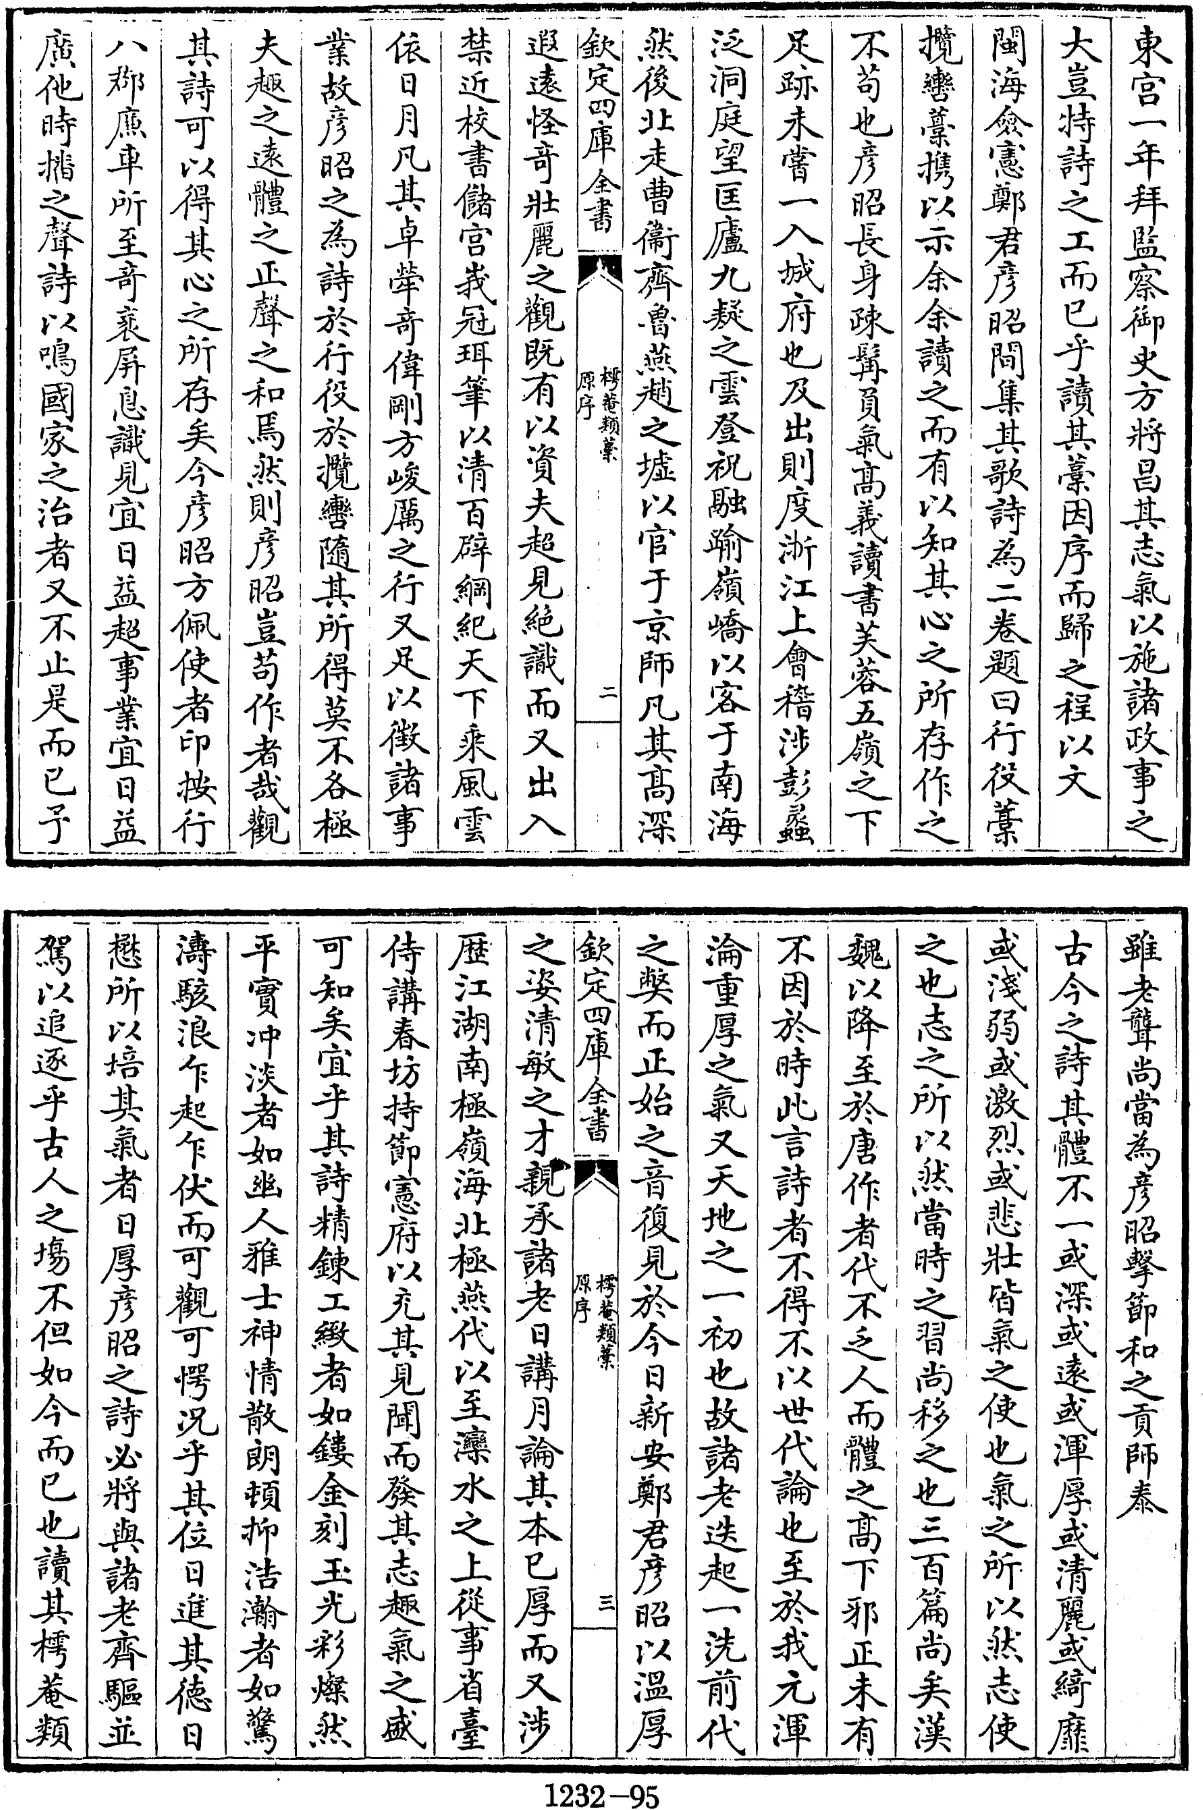 東宫一年拜監察御史方將昌其志氣以施諸政事之
大豈特詩之工而已乎讀其藁因序而歸之程以文
閩海僉憲鄭君彦昭間集其歌詩為二卷題曰行役藁
攬轡藁携以示余余讀之而有以知其心之所存作之
不苟也彦昭長身疎髯負氣髙義讀書芙蓉五嶺之下
足跡未嘗一入城府也及出則度浙江上會稽渉彭蠡
泛洞庭望匡廬九疑之雲登祝融踰嶺嶠以客于南海
然後北走曹衞齊魯燕趙之墟以官于京師凡其髙深
欽定四庫全書
樗菴類藁
原序
二
遐逺怪竒壯麗之觀既有以資夫超見絶識而又出入
禁近校書儲宫峩冠珥筆以清百辟綱紀天下乘風雲
依日月凡其卓犖竒偉剛方峻厲之行又足以徵諸事
業故彦昭之為詩於行役於攬轡隨其所得莫不各極
夫趣之逺體之正聲之和焉然則彦昭豈苟作者哉觀
其詩可以得其心之所存矣今彦昭方佩使者印按行
八郡廉車所至竒衺屏息識見宜日益超事業宜日益
廣他時播之聲詩以鳴國家之治者又不止是而已予
雖老聾尚當為彦昭擊節和之貢師泰
古今之詩其體不一或深或逺或渾厚或清麗或綺靡
或淺弱或激烈或悲壯皆氣之使也氣之所以然志使
之也志之所以然當時之習尚移之也三百篇尚矣漢
魏以降至於唐作者代不乏人而體之髙下邪正未有
不因於時此言詩者不得不以世代論也至於我元渾
淪重厚之氣又天地之一初也故諸老迭起一洗前代
之獘而正始之音復見於今日新安鄭君彦昭以溫厚
欽定四庫全書
樗菴類藁
原序
三
之姿清敏之才親承諸老日講月論其本已厚而又渉
歴江湖南極嶺海北極燕代以至灤水之上從事省臺
侍講春坊持節憲府以充其見聞而發其志趣氣之盛
可知矣宜乎其詩精錬工緻者如鏤金刻玉光彩燦然
平實冲淡者如幽人雅士神情散朗頓抑浩瀚者如驚
濤駭浪乍起乍伏而可觀可愕况乎其位日進其德日
懋所以培其氣者日厚彦昭之詩必將與諸老齊驅並
駕以追逐乎古人之塲不但如今而已也讀其樗菴類
1232-95